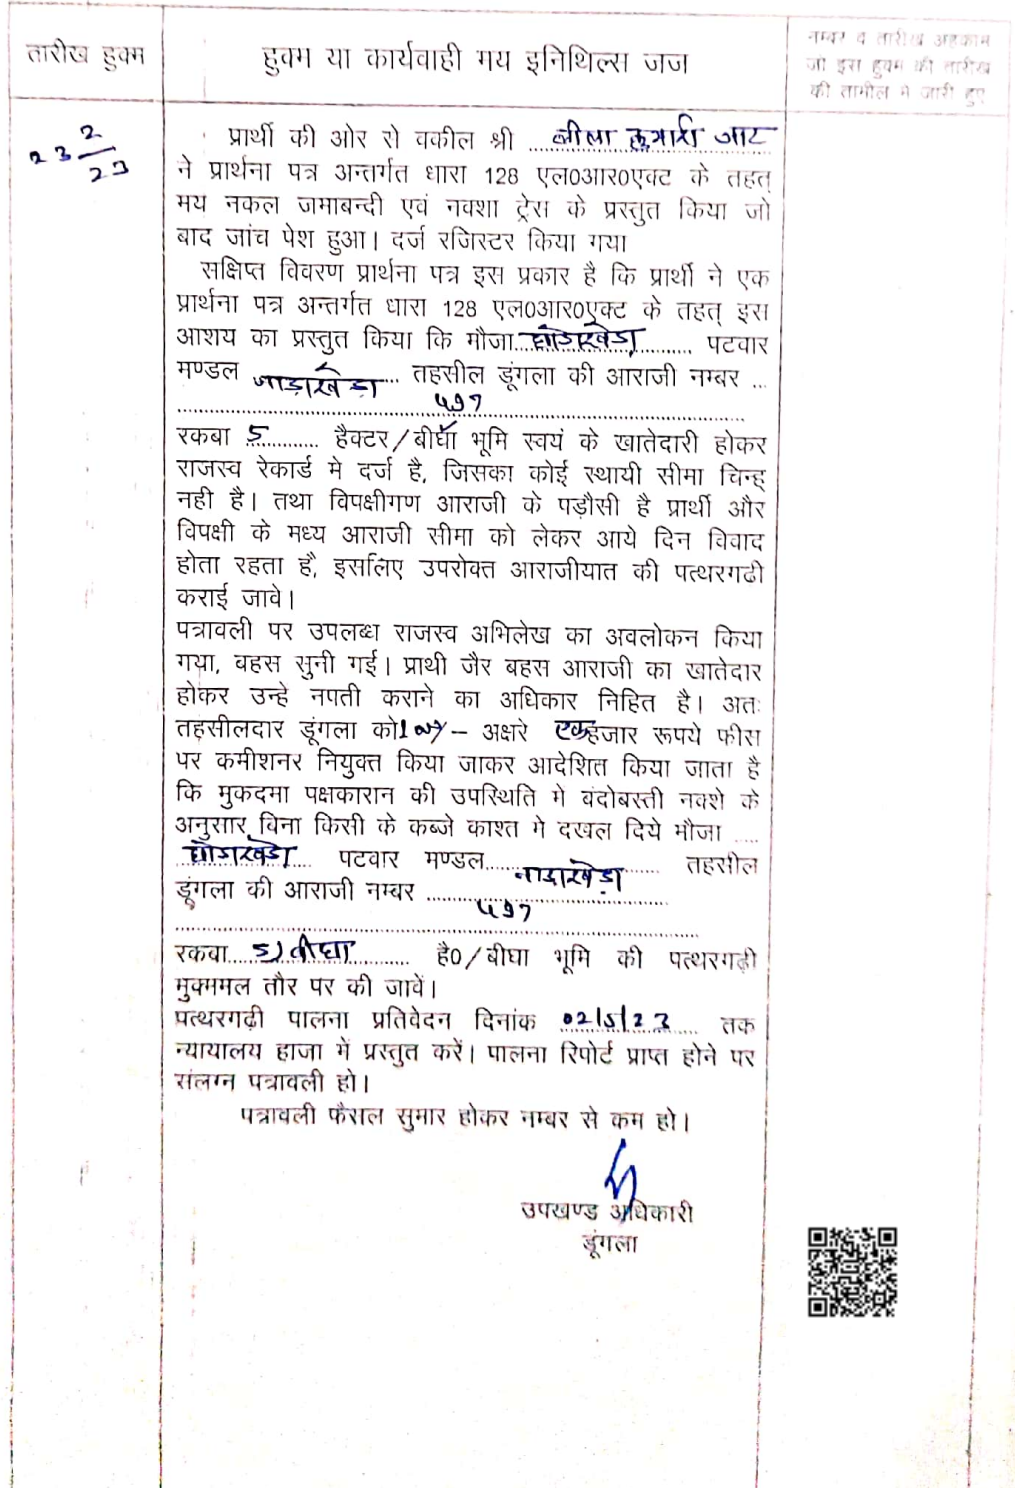 तारीख हुक्म
हुक्म या कार्यवाही मय इनिथिल्स जज
नम्बर व तारीख अहकाम
जो इस हुक्म की तारीख
की तामील मे जारी हुए
23 2/23
प्रार्थी की ओर से वकील श्री .......... जाट
ने प्रार्थना पत्र अन्तर्गत धारा 128 एल0आर0एक्ट के तहत्
मय नकल जमाबन्दी एवं नक्शा ट्रेस के प्रस्तुत किया जो
बाद जांच पेश हुआ। दर्ज रजिस्टर किया गया
सक्षिप्त विवरण प्रार्थना पत्र इस प्रकार है कि प्रार्थी ने एक
प्रार्थना पत्र अन्तर्गत धारा 128 एल0आर0एक्ट के तहत् इस
आशय का प्रस्तुत किया कि मौजा .......... पटवार
मण्डल .......... तहसील डूंगला की आराजी नम्बर ...
497
रकबा 5 .......... हैक्टर/बीघा भूमि स्वयं के खातेदारी होकर
राजस्व रेकार्ड मे दर्ज है, जिसका कोई स्थायी सीमा चिन्ह्
नही है। तथा विपक्षीगण आराजी के पड़ौसी है प्रार्थी और
विपक्षी के मध्य आराजी सीमा को लेकर आये दिन विवाद
होता रहता है, इसलिए उपरोक्त आराजीयात की पत्थरगढी
कराई जावे।
पत्रावली पर उपलब्ध राजस्व अभिलेख का अवलोकन किया
गया, वहस सुनी गई। प्राथी जैर बहस आराजी का खातेदार
होकर उन्हे नपती कराने का अधिकार निहित है। अतः
तहसीलदार डूंगला को – अक्षरे एक हजार रूपये फीस
पर कमीशनर नियुक्त किया जाकर आदेशित किया जाता है
कि मुकदमा पक्षकारान की उपस्थिति मे बंदोबस्ती नक्शे के
अनुसार बिना किसी के कब्जे काश्त मे दखल दिये मौजा ....
.......... पटवार मण्डल .......... तहसील
डूंगला की आराजी नम्बर ..........
497
रकबा 5) बीघा .......... है0/बीघा भूमि की पत्थरगढ़ी
मुक्ममल तौर पर की जावें।
पत्थरगढ़ी पालना प्रतिवेदन दिनांक 02/5/23 तक
न्यायालय हाजा में प्रस्तुत करें। पालना रिपोर्ट प्राप्त होने पर
संलग्न पत्रावली हो।
पत्रावली फैसल सुमार होकर नम्बर से कम हो।
उपखण्ड अधिकारी
डूंगला